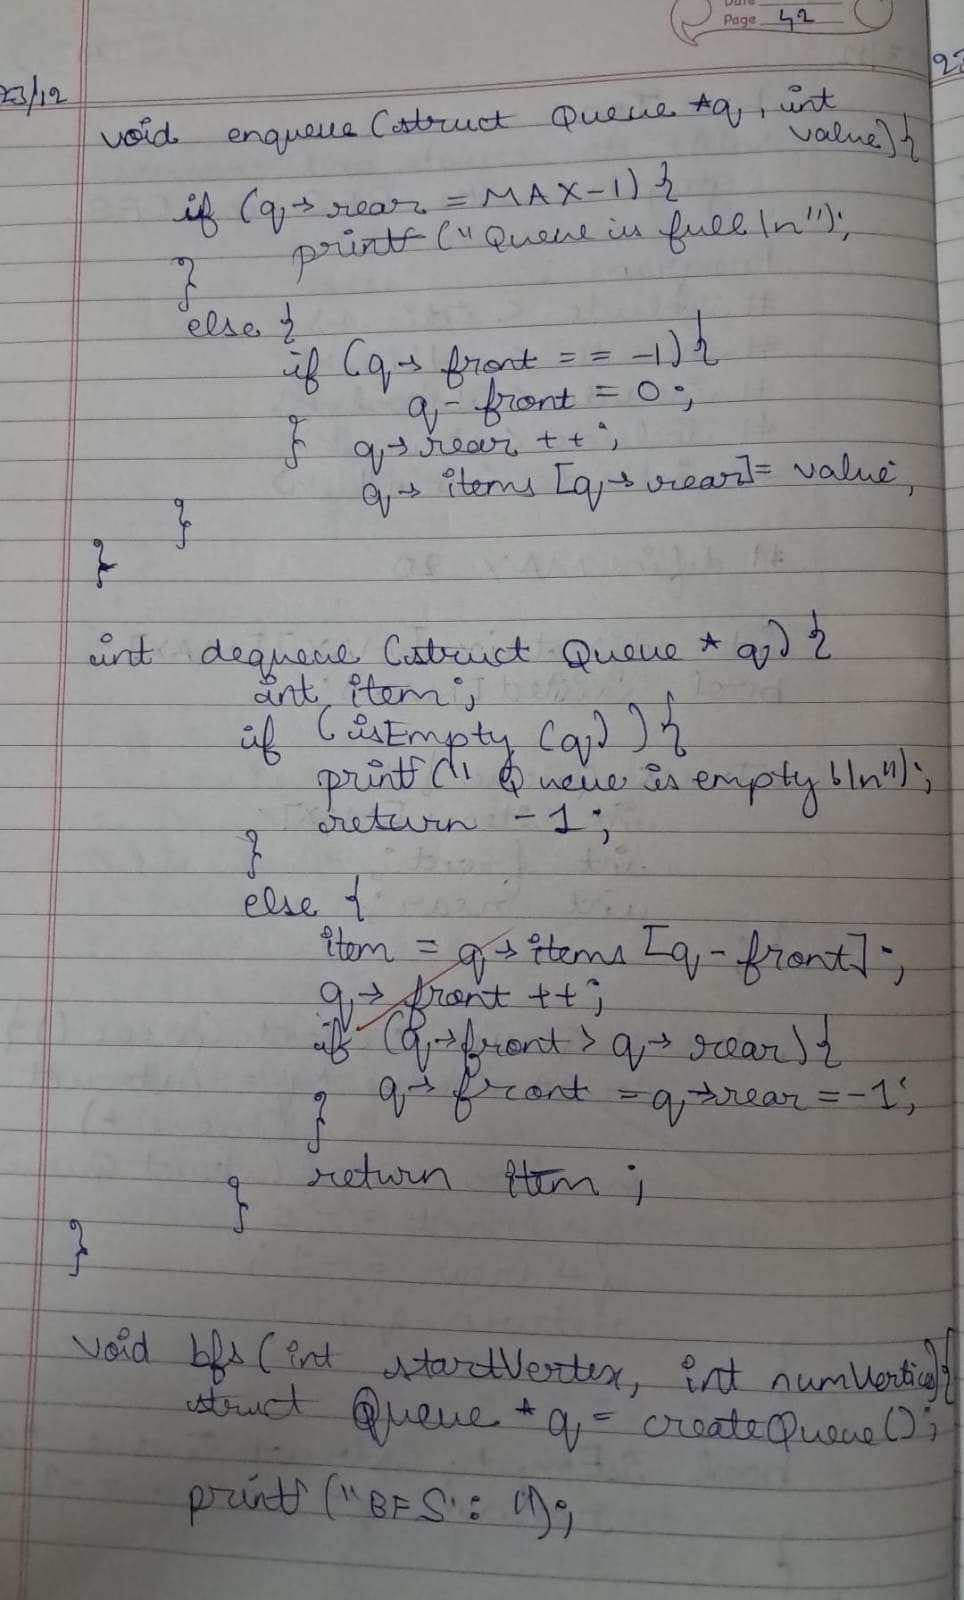 Date
Page 42
23/12
void enqueue (struct Queue *q, int
value) {
if (q→rear = MAX-1) {
printf ("Queue is full \n");
}
else {
if (q→ front == -1) {
q- front = 0;
} q→rear ++;
q→ items [q→rear] = value,
}
}
int dequeue (struct Queue * q) {
int item;
if (isEmpty (q)) {
printf (" Queue is empty \n");
return -1;
}
else {
item = q→items [q- front];
q→ front ++;
if (q→front > q→ rear) {
q→ front = q→rear = -1;
}
return item;
}
}
void bfs (int startVertex, int numVertices) {
struct Queue * q = createQueue ();
printf ("BFS: ");